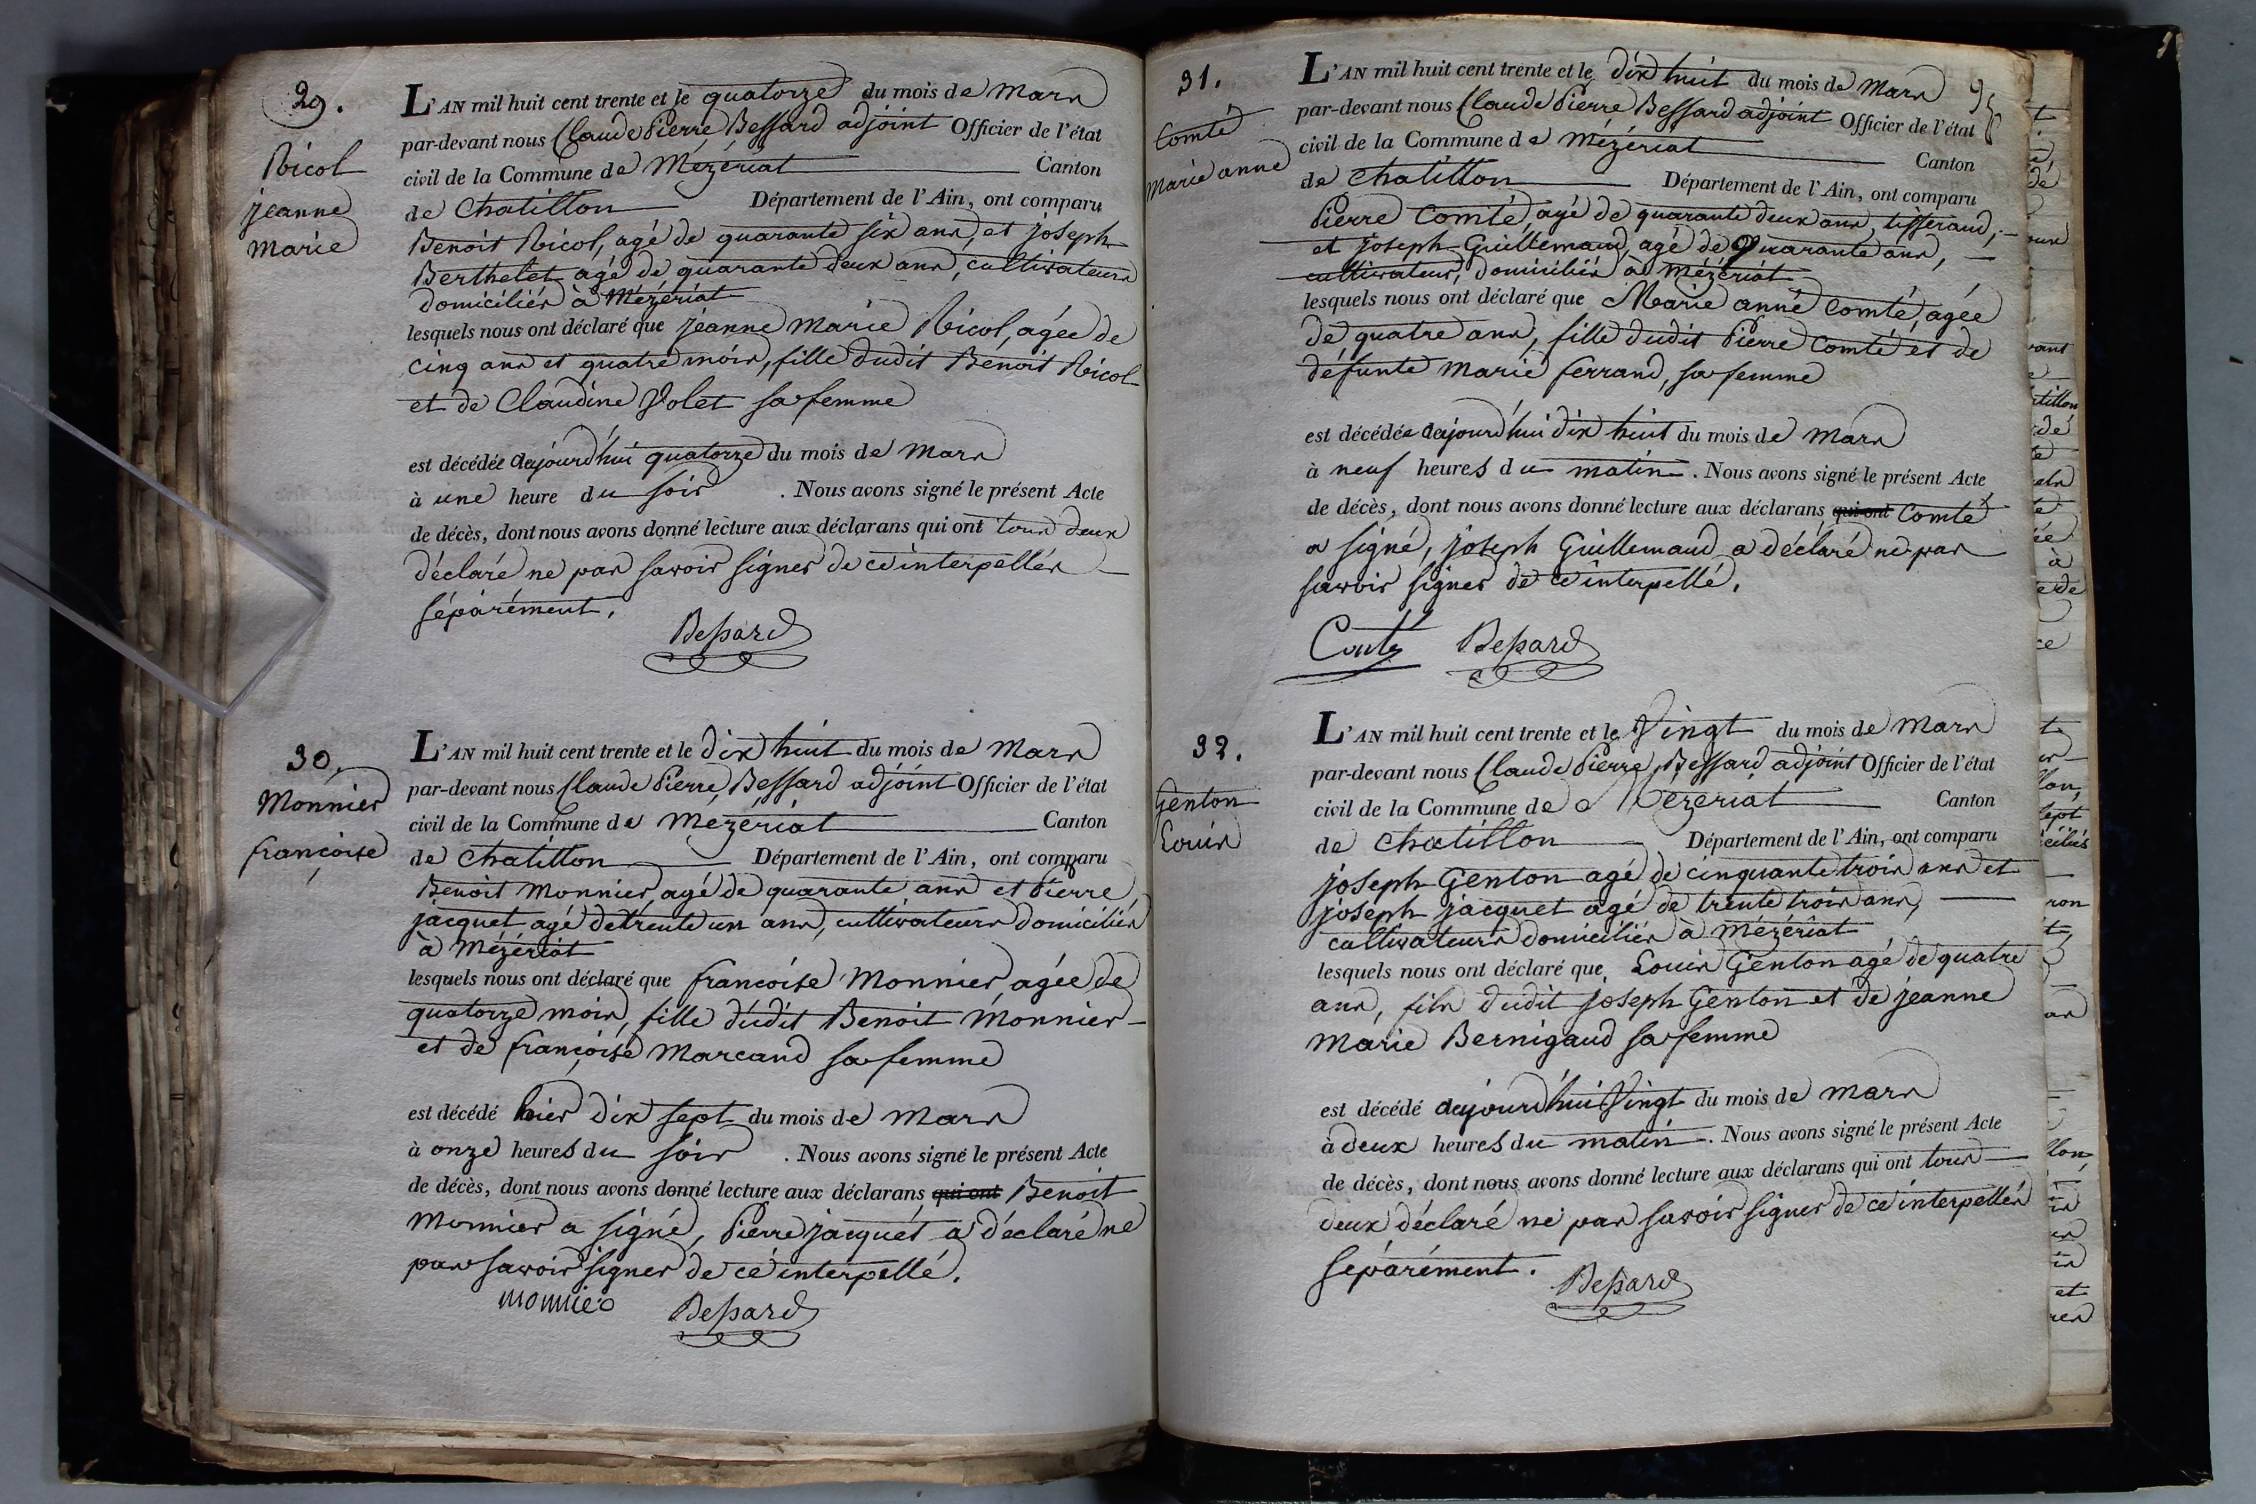 29.
Ricol
jeanne
marie
L'AN mil huit cent trente et le quatorze du mois de mars
par-devant nous Claude Pierre Bessard adjoint Officier de l'état
civil de la Commune de Mézériat Canton
de chatillon Département de l'Ain, ont comparu
Benoit Ricol, agé de quarante six ans, et joseph
Berthelet agé de quarante deux ans, cultivateurs
domiciliés à Mézériat
lesquels nous ont déclaré que jeanne marie Ricol, agée de
cinq ans et quatre mois, fille dudit Benoit Ricol
et de Claudine Volet sa femme
est décédée aujourd'hui quatorze du mois de mars
à une heure du soir . Nous avons signé le présent Acte
de décès, dont nous avons donné lecture aux déclarans qui ont tous deux
déclaré ne pas savoir signer de ce interpellés
séparément.
Bessard
30.
Monnier
françoise
L'AN mil huit cent trente et le dix huit du mois de mars
par-devant nous Claude Pierre Bessard adjoint Officier de l'état
civil de la Commune de Mézériat Canton
de chatillon Département de l'Ain, ont comparu
Benoit Monnier, agé de quarante ans et Pierre
jacquet agé de trente un ans, cultivateurs domiciliés
à Mézériat
lesquels nous ont déclaré que françoise Monnier, agée de
quatorze mois, fille dudit Benoit Monnier
et de françoise Marcand sa femme
est décédé hier dix sept du mois de mars
à onze heures du soir . Nous avons signé le présent Acte
de décès, dont nous avons donné lecture aux déclarans qui ont Benoit
Monnier a signé, Pierre jacquet a déclaré ne
pas savoir signer de ce interpellé.
monnier Bessard
31.
Comté
Marie anne
L'AN mil huit cent trente et le dix huit du mois de mars
par-devant nous Claude Pierre Bessard adjoint Officier de l'état
civil de la Commune de Mézériat Canton
de chatillon Département de l'Ain, ont comparu
Pierre Comté, agé de quarante deux ans, tisserand,
et joseph Guillemaud, agé de quarante ans,
cultivateur, domiciliés à Mézériat
lesquels nous ont déclaré que Marie anne Comté, agée
de quatre ans, fille dudit Pierre Comté et de
défunte Marie ferrand, sa femme
est décédée aujourd'hui dix huit du mois de mars
à neuf heures du matin . Nous avons signé le présent Acte
de décès, dont nous avons donné lecture aux déclarans qui ont Comté
a signé, joseph Guillemaud a déclaré ne pas
savoir signer de ce interpellé.
Conté Bessard
32.
Genton
Louis
L'AN mil huit cent trente et le Vingt du mois de mars
par-devant nous Claude Pierre Bessard adjoint Officier de l'état
civil de la Commune de Mézériat Canton
de chatillon Département de l'Ain, ont comparu
joseph Genton agé de cinquante trois ans et
joseph jacquet agé de trente trois ans,
cultivateurs domiciliés à Mézériat
lesquels nous ont déclaré que Louis Genton agé de quatre
ans, fils dudit joseph Genton et de jeanne
marie Bernigaud sa femme
est décédé aujourd'hui Vingt du mois de mars
à deux heures du matin . Nous avons signé le présent Acte
de décès, dont nous avons donné lecture aux déclarans qui ont tous
deux déclaré ne pas savoir signer de ce interpellés
séparément.
Bessard